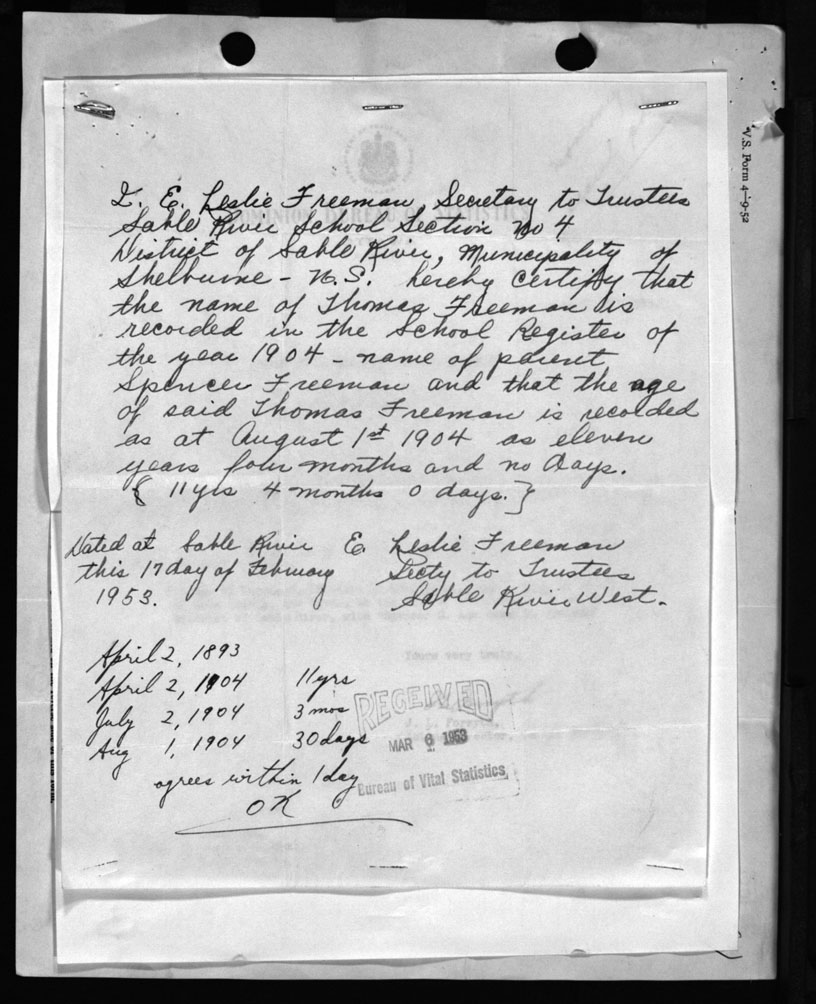 V.S. Form 4-9-52
I. E. Leslie Freeman, Secretary to Trustees
Sable River School Section No 4
District of Sable River, Municipality of
Shelburne - N.S. hereby certify that
the name of Thomas Freeman is
recorded in the School Register of
the year 1904 - name of parent
Spencer Freeman and that the age
of said Thomas Freeman is recorded
as at August 1st 1904 as eleven
years four months and no days.
{ 11 yrs 4 months 0 days. }
Dated at Sable River E. Leslie Freeman
this 17 day of February Secty to Trustees
1953. Sable River West.
April 2, 1893
April 2, 1904 11 yrs
July 2, 1904 3 mos
Aug 1, 1904 30 days
agrees within 1 day
OK
RECEIVED
MAR 6 1953
Bureau of Vital Statistics
DOMINION BUREAU OF STATISTICS
Yours very truly,